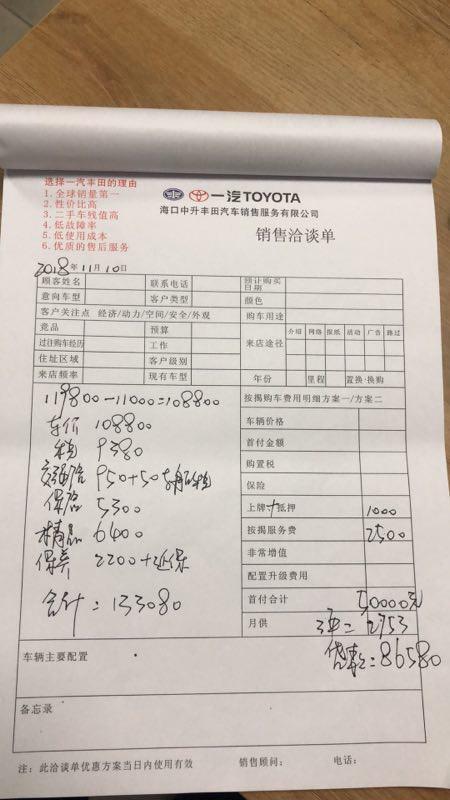 选择一汽丰田的理由
1.全球销量第一
2.性价比高
3.二手车残值高
4.低故障率
5.低使用成本
6.优质的售后服务
一汽TOYOTA
海口中升丰田汽车销售服务有限公司
销售洽谈单
2018年11月10日
顾客姓名 联系电话 预计购买日期
意向车型 客户类型 颜色
客户关注点 经济/动力/空间/安全/外观 购车用途
竞品 预算 来店途径 介绍 网络 报纸 活动 广告 路过
过往购车经历 工作
住址区域 客户级别
来店频率 现有车型 年份 里程 置换·换购
119800-11000=108800
车价 108800
税 9380
交强险 950+50车船税
保险 5300
精品 6400
保养 2200+延保
合计：133080
按揭购车费用明细方案一/方案二
车辆价格
首付金额
购置税
保险
上牌+抵押 1000
按揭服务费 2500
非常增值
配置升级费用
首付合计 50000元
月供 2753
贷款：86580
车辆主要配置
备忘录
注：此洽谈单优惠方案当日内使用有效 销售顾问： 电话：